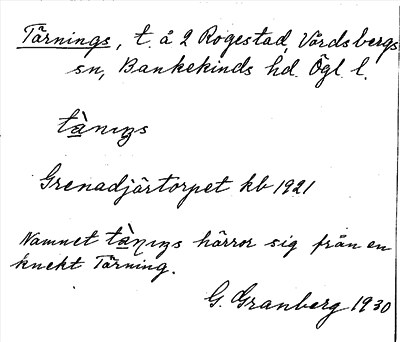 Tärnings, t. å 2 Rogestad, Vårdsbergs
sn, Bankekinds hd. Ögl. l.
tànıŋs
Grenadjärtorpet kb 1921
Namnet tànıŋs härror sig från en
knekt Tärning.
G. Granberg 1930